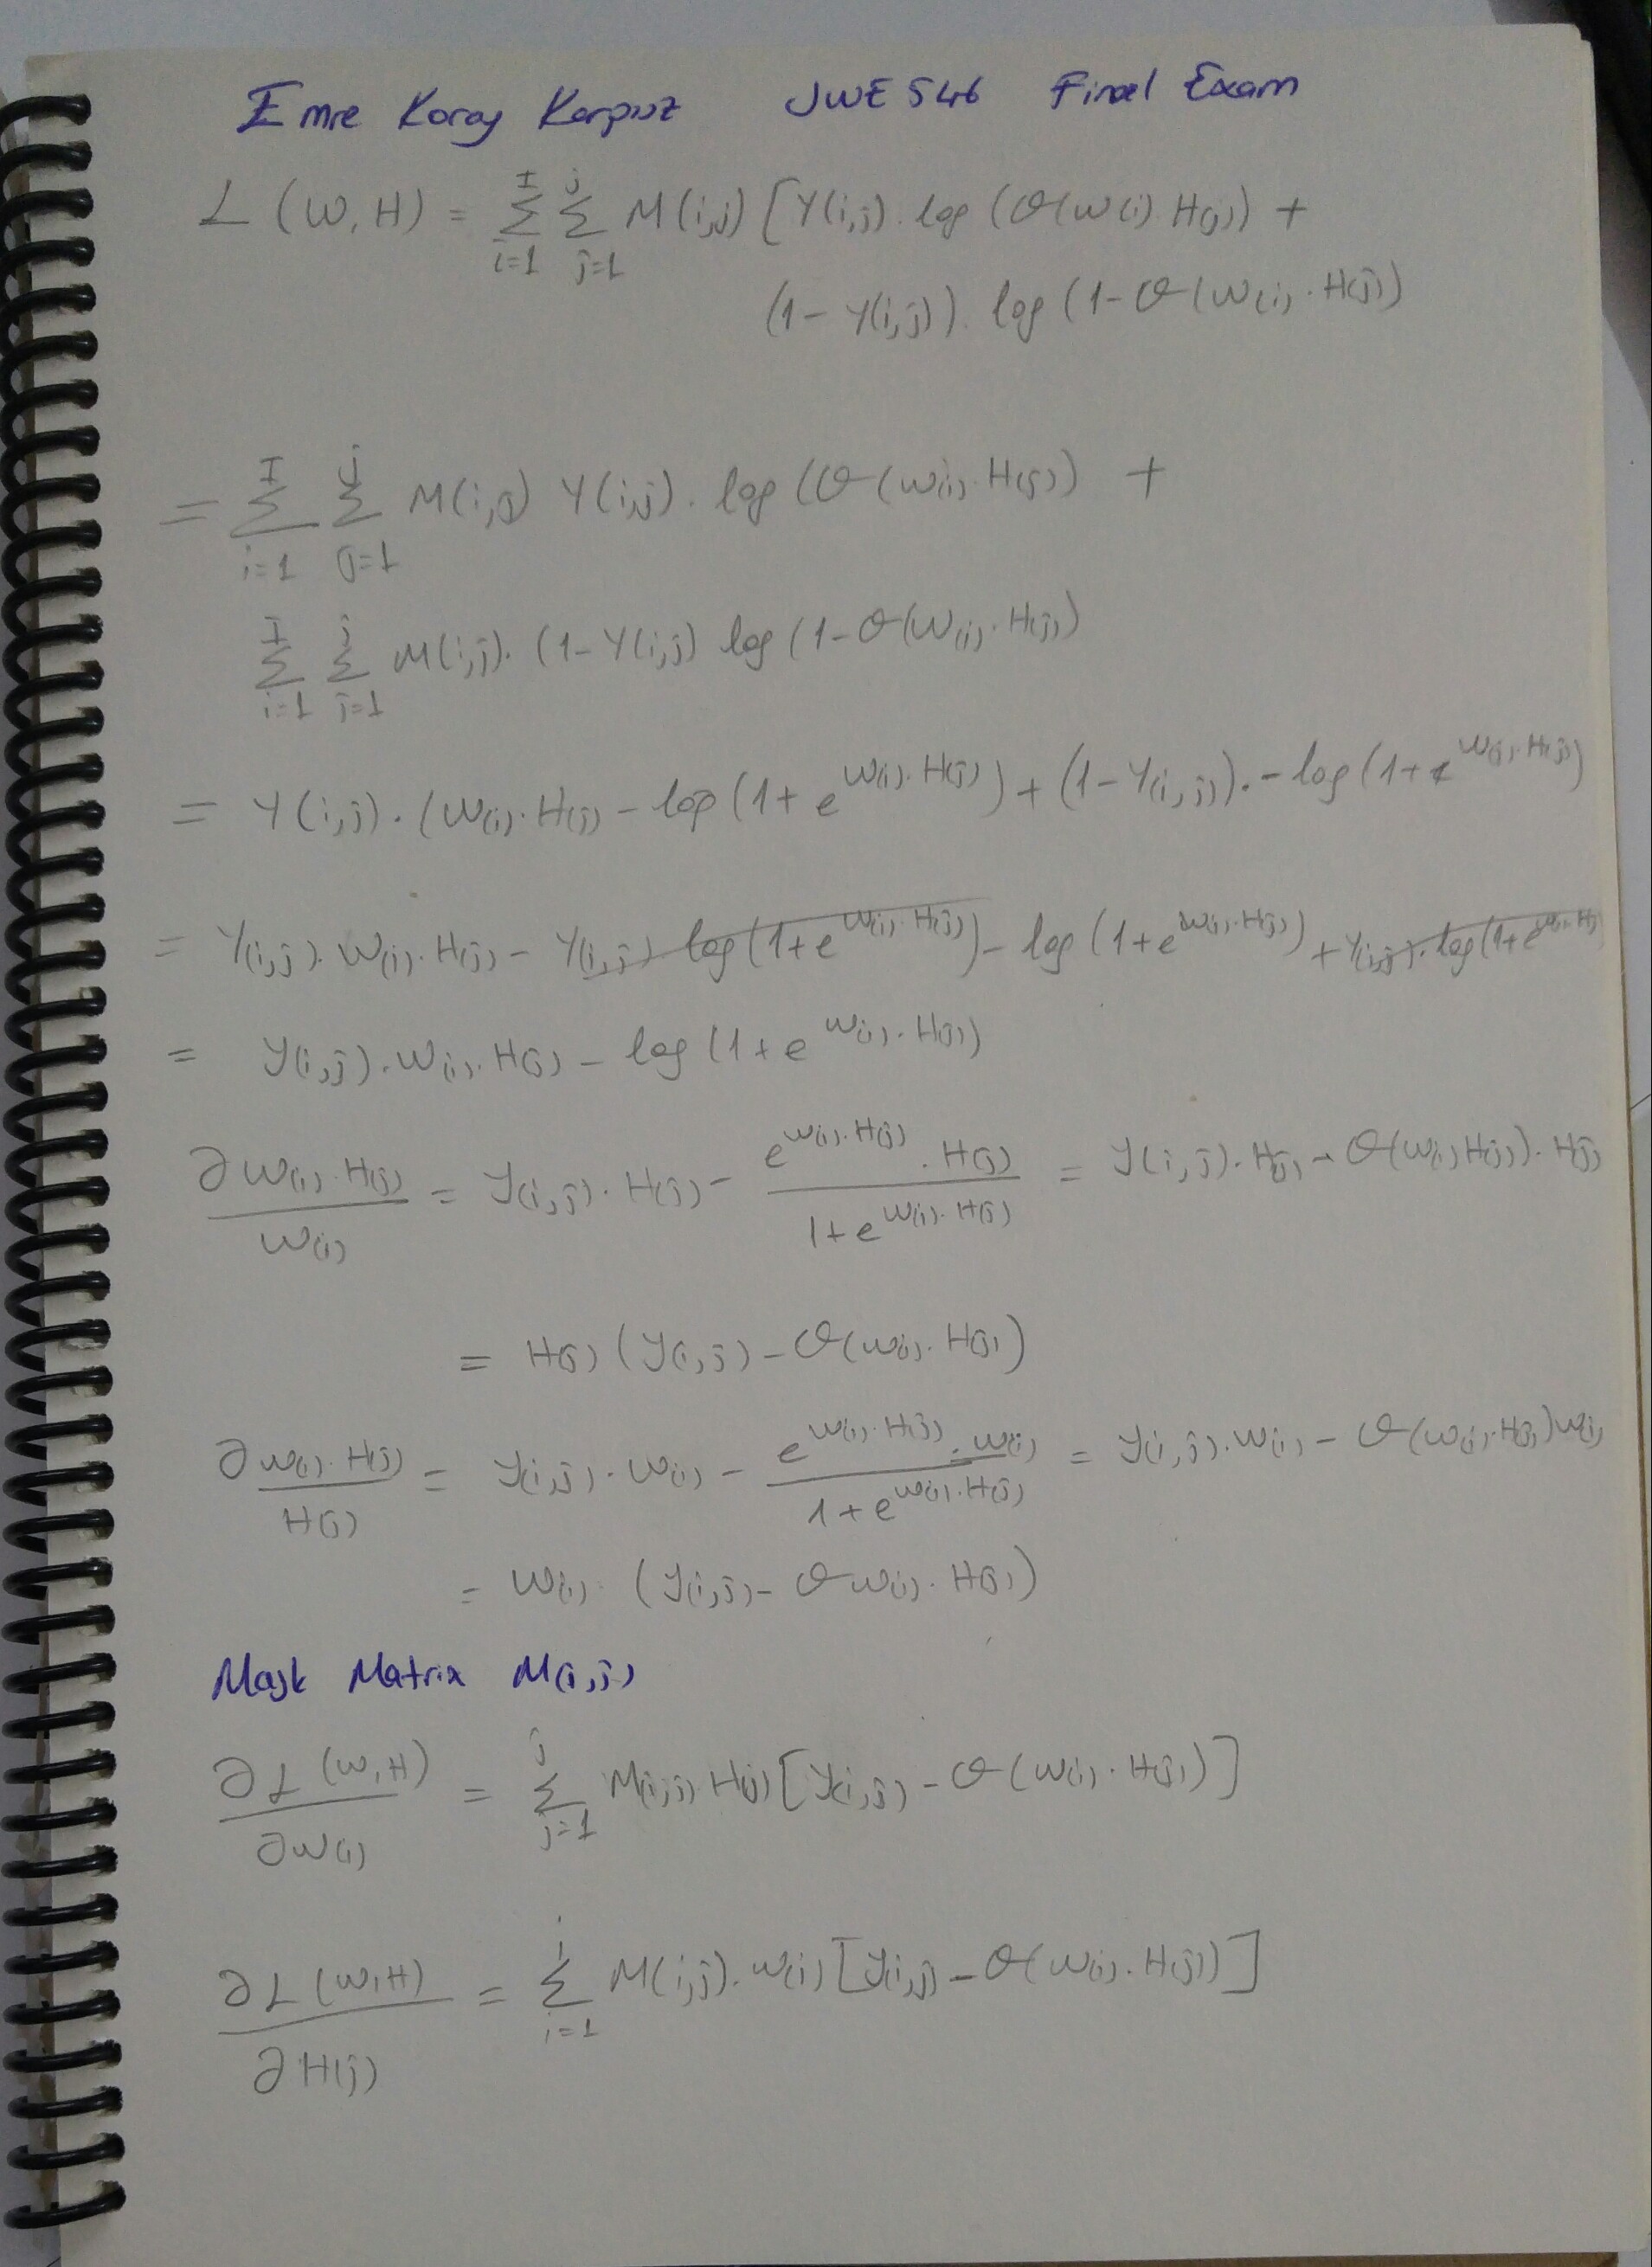 Emre Koray Karpuz JWE 546 Final Exam
L (W, H) = Σ_{i=1}^{I} Σ_{j=1}^{j} M(i,j) [Y(i,j) . log (σ(w(i) H(j)) +
(1 - Y(i,j)) . log (1 - σ(W(i) . H(j))
= Σ_{i=1}^{I} Σ_{j=1}^{j} M(i,j) Y(i,j) . log (σ(w(i) . H(j)) +
Σ_{i=1}^{I} Σ_{j=1}^{j} M(i,j) . (1 - Y(i,j) log (1 - σ(W(i) . H(j))
= Y(i,j) . (W(i) . H(j) - log (1 + e^{W(i) . H(j)}) + (1 - Y(i,j)) . - log (1 + e^{W(i) . H(j)})
= Y(i,j) . W(i) . H(j) - Y(i,j) log (1 + e^{W(i) . H(j)}) - log (1 + e^{W(i) . H(j)}) + Y(i,j) . log (1 + e^{W(i) . H(j)}
= Y(i,j) . W(i) . H(j) - log (1 + e^{W(i) . H(j)})
∂ W(i) . H(j) / W(i) = Y(i,j) . H(j) - e^{W(i) . H(j)} . H(j) / 1 + e^{W(i) . H(j)} = Y(i,j) . H(j) - σ(W(i) H(j)) . H(j)
= H(j) (Y(i,j) - σ(W(i) . H(j))
∂ W(i) . H(j) / H(j) = Y(i,j) . W(i) - e^{W(i) . H(j)} . W(i) / 1 + e^{W(i) . H(j)} = Y(i,j) . W(i) - σ(W(i) . H(j)) W(i)
= W(i) . (Y(i,j) - σ W(i) . H(j))
Mask Matrix M(i,j)
∂ L (W, H) / ∂ W(i) = Σ_{j=1}^{j} M(i,j) H(j) [Y(i,j) - σ(W(i) . H(j))]
∂ L (W, H) / ∂ H(j) = Σ_{i=1}^{i} M(i,j) . W(i) [Y(i,j) - σ(W(i) . H(j))]